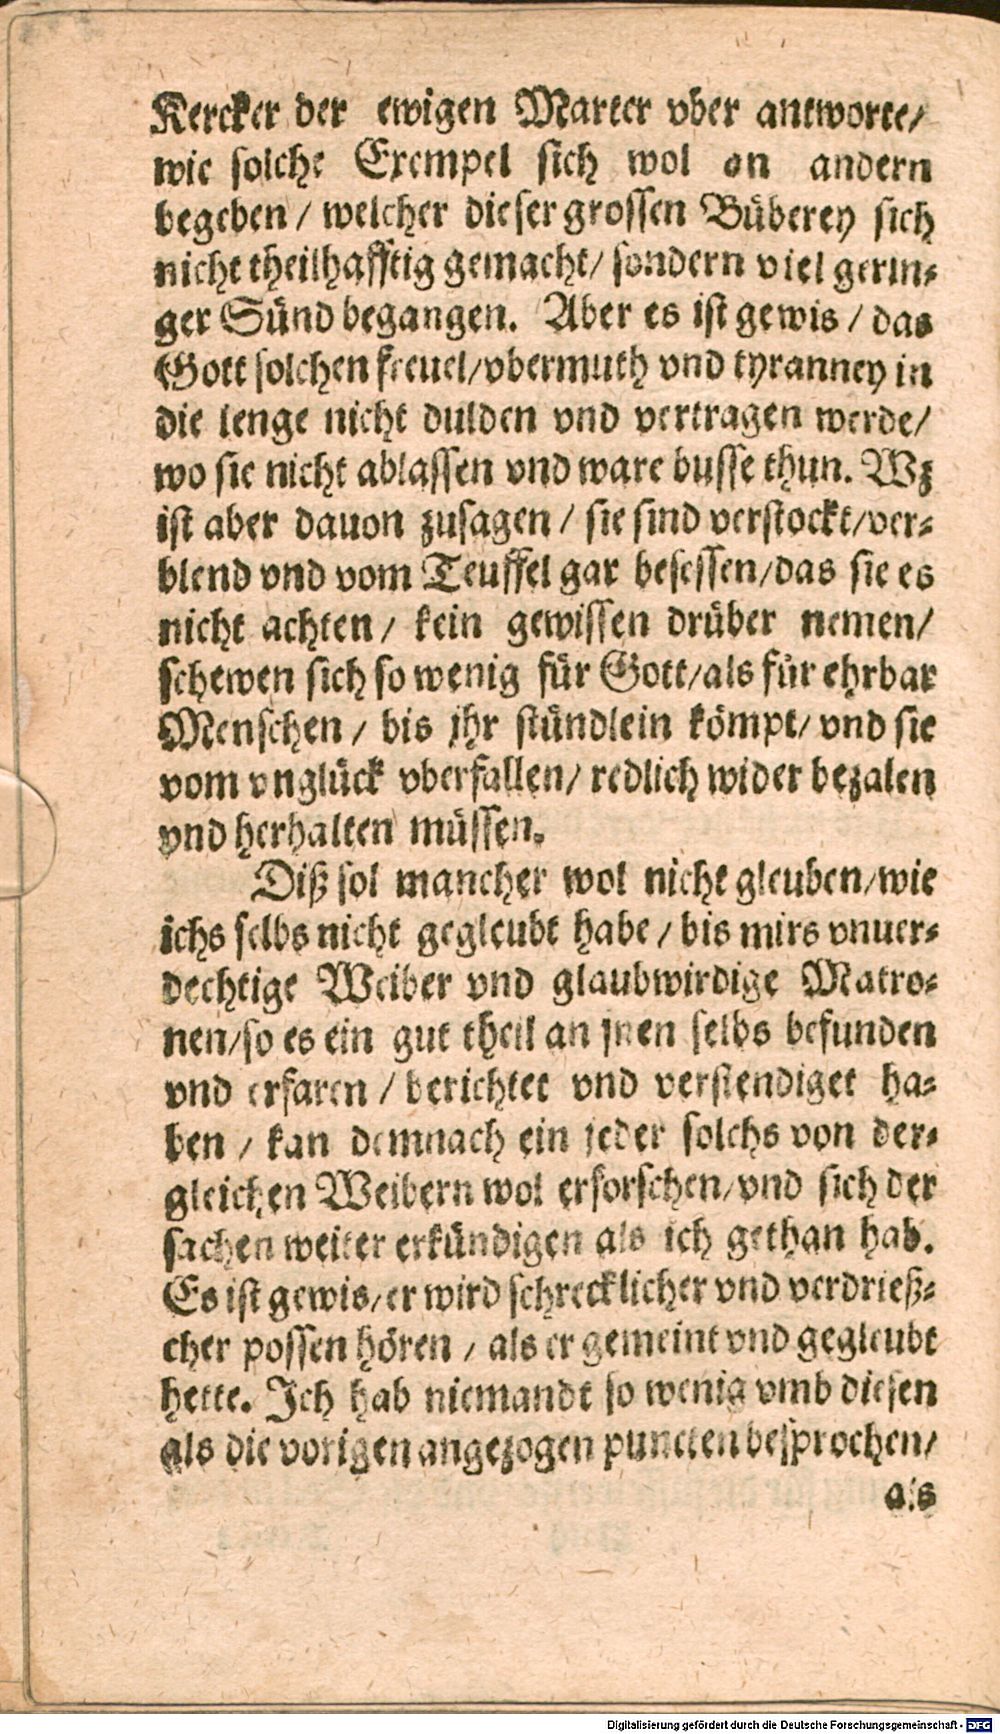 Kercker der ewigen Marter vber antworte/
wie solche Exempel sich wol an andern
begeben / welcher dieser grossen Büberey sich
nicht theilhafftig gemacht/ sondern viel gerin⸗
ger Sünd begangen. Aber es ist gewis / das
Gott solchen freuel/vbermuth vnd tyranney in
die lenge nicht dulden vnd vertragen werde/
wo sie nicht ablassen vnd ware busse thun. Wz
ist aber dauon zusagen / sie sind verstockt/ver⸗
blend vnd vom Teuffel gar besessen/das sie es
nicht achten/ kein gewissen drüber nemen/
schewen sich so wenig für Gott/als für ehrbar
Menschen / bis jhr stündlein kömpt/ vnd sie
vom vnglück vberfallen/ redlich wider bezalen
vnd herhalten müssen.
Diß sol mancher wol nicht gleuben/wie
ichs selbs nicht gegleubt habe / bis mirs vnuer⸗
dechtige Weiber vnd glaubwirdige Matro⸗
nen/so es ein gut theil an jnen selbs befunden
vnd erfaren / berichtet vnd verstendiget ha⸗
ben / kan demnach ein jeder solchs von der⸗
gleichen Weibern wol erforschen/vnd sich der
sachen weiter erkündigen als ich gethan hab.
Es ist gewis/er wird schrecklicher vnd verdrieß⸗
cher possen hören / als er gemeint vnd gegleubt
hette. Ich hab niemandt so wenig vmb diesen
als die vorigen angezogen puncten besprochen/
als
Digitalisierung gefördert durch die Deutsche Forschungsgemeinschaft - DFG